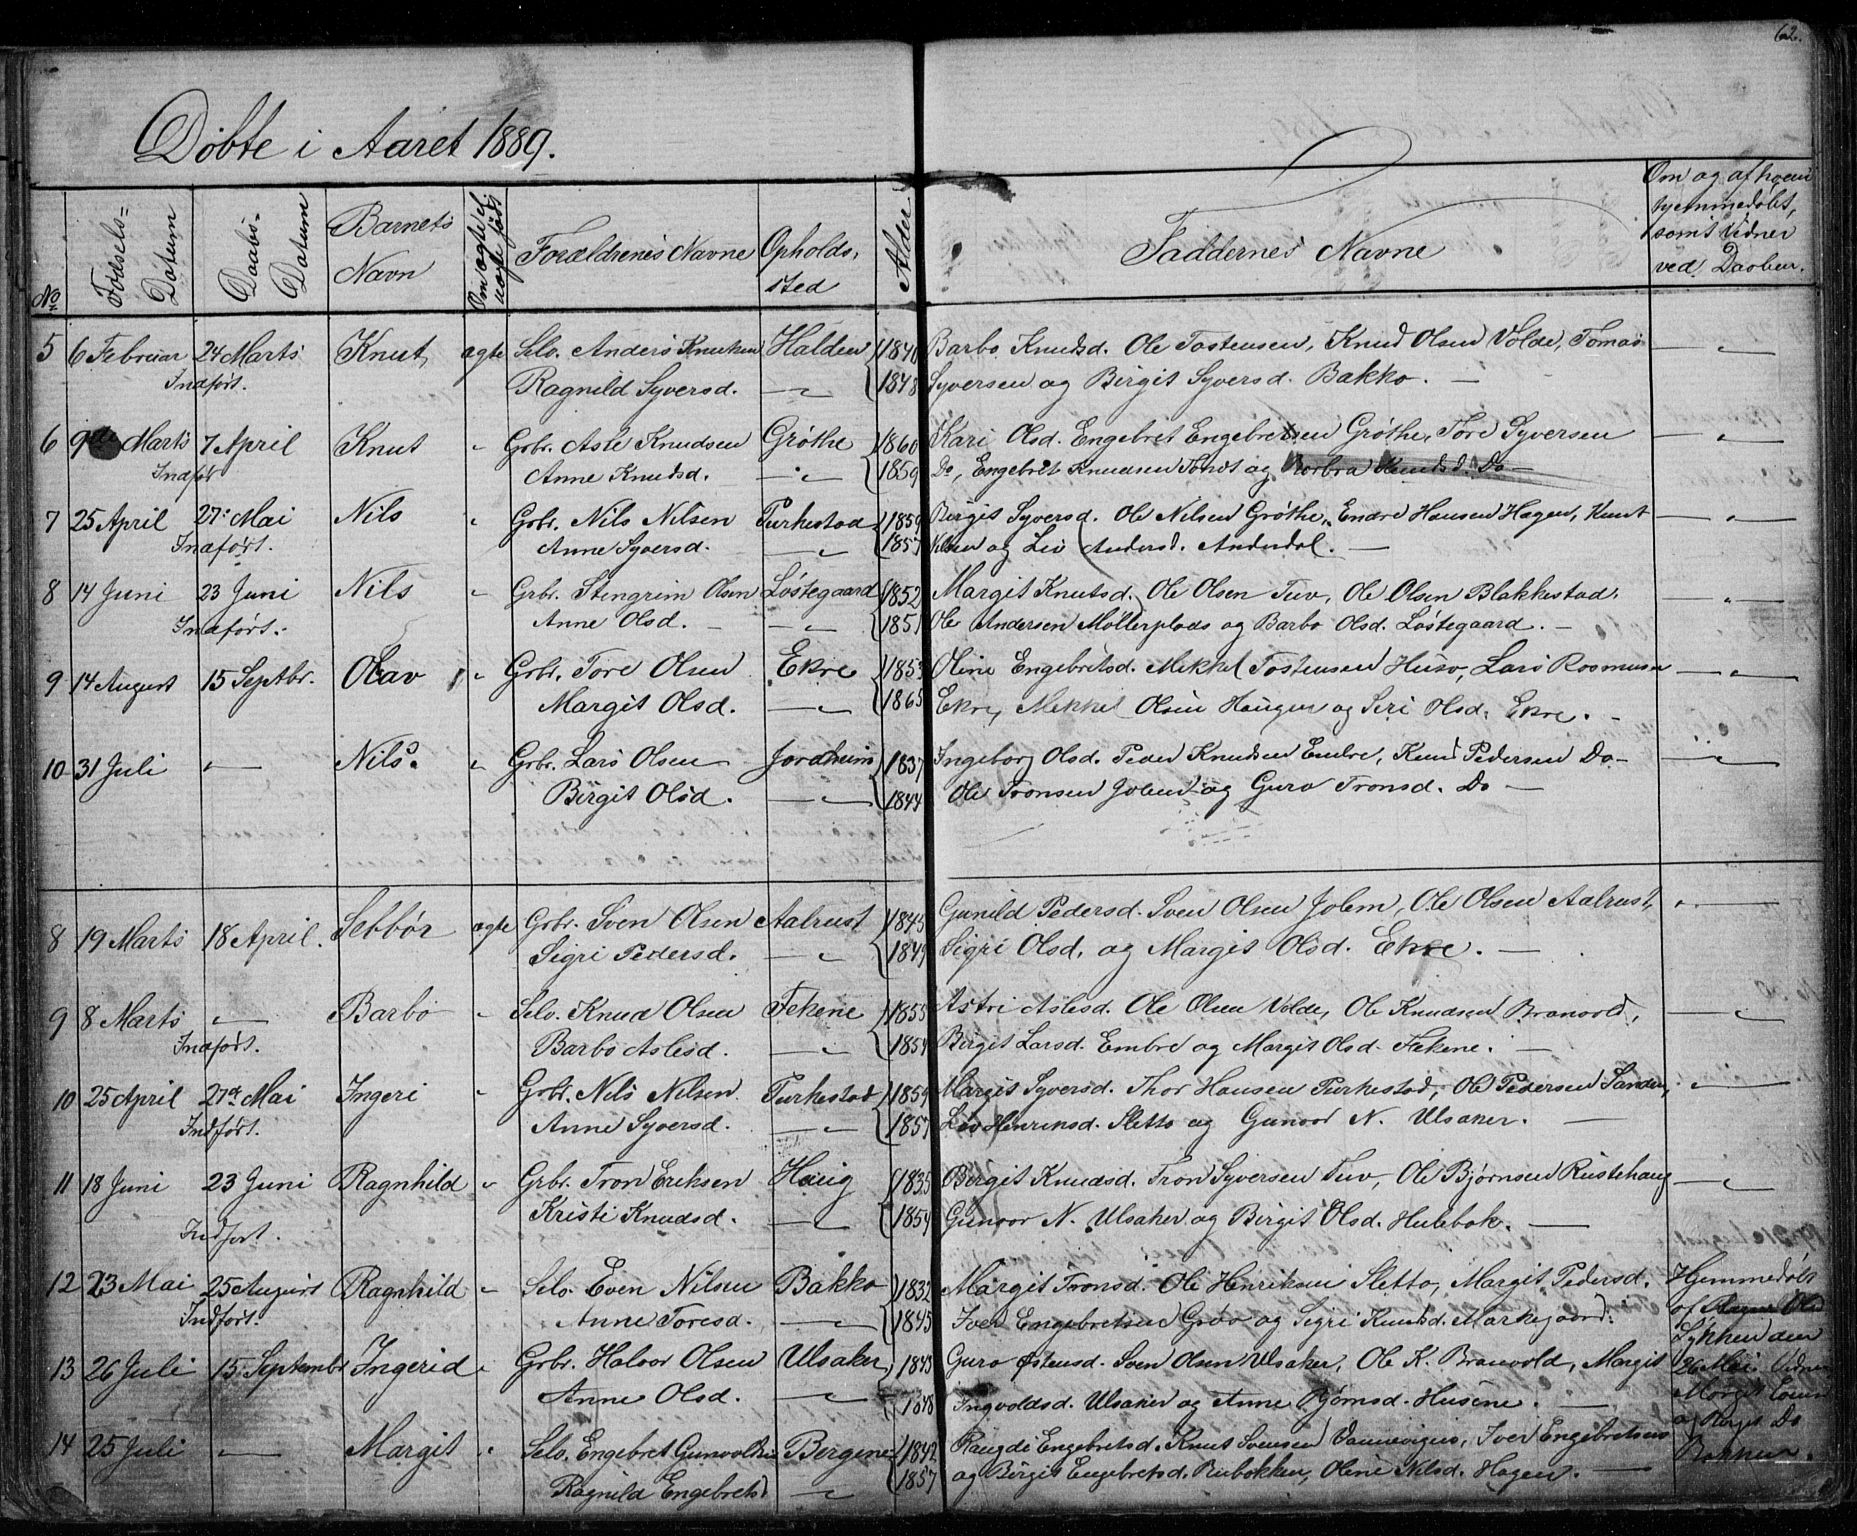 62.
Døbte i Aaret 1889.
No
Fødsels=
Datum
Daabs-
Datum
Barnets
Navn
Om ægte el.
uægte født
Forældrenes Navne
Opholds,
sted
Alder
Faddernes Navne
Om og af hvem
hjemmedøbt,
samt Vidner
ved Daaben.
5 6 Februar 24 Marts Knut, ægte Selv. Anders Knutsen Halden 1840 Barbo Knudsd. Ole Tostensen, Knud Olsen Volde, Tomas
Indført. Ragnild Syversd. 1848 Syversen og Birgit Syversd. Bakko.
6 9de Marts 7 April Knut Grbr. Asle Knudsen Grøthe 1860 Kari Olsd. Engebret Engebretsen Grøthe, Tore Syversen
Indført Anne Knudsd. 1859 Do, Engebret Knudsen og Barbra Knudsd. Do
7 25 April 27. Mai Nils Grbr. Nils Nilsen Turkestad 1859 Birgit Syversd. Ole Nilsen Grøthe, Endre Hansen Hagen, Knut
Indført. Anne Syversd. 1857 og Liv Andersd. Anderdal.
8 14 Juni 23 Juni Nils Grbr. Stengrim Olsen Løstegaard 1852 Margit Knutsd. Ole Olsen Tuv, Ole Olsen Blakkestad.
Indført. Anne Olsd. 1851 Ole Andersen Møllerplads og Barbo Olsd. Løstegaard.
9 14 August 15 Septbr. Olav Grbr. Tore Olsen Ekre 1853 Oline Engebretsd. Mikkel Tostensen Huso, Lars Rasmusen
Margit Olsd. 1865 Ekre, Mikkel Olsen Haugen og Siri Olsd. Ekre.
10 31 Juli Nils. Grbr. Lars Olsen Jordheim 1837 Ingeborg Olsd. Peder Knudsen Embre, Knud Pedersen Do
Birgit Olsd. 1844 Ole Tronsen Jolem og Guro Tronsd. Do
8 19 Marts 18 April. Sebbør ægte Grbr. Sven Olsen Aalrust 1845 Gunild Pedersd. Sven Olsen Jolem, Ole Olsen Aalrust,
Sigri Pedersd. 1849 Sigri Olsd. og Margit Olsd. Ekre.
9 8 Marts Barbo Selv. Knud Olsen Fekene 1855 Astri Aslesd. Ole Olsen Volde, Ole Knudsen Branvold,
Indført. Barbo Aslesd. 1854 Birgit Larsd. Embre og Margit Olsd. Fekene.
10 25 April 27de Mai Ingeri Grbr. Nils Nilsen Turkestad 1859 Margit Syversd. Thor Hansen Turkestad, Ole Pedersen Sanden,
Indført. Anne Syversd. 1857 Liv Henriksd. Sletto og Gunvor N. Ulsaker.
11 18 Juni 23 Juni Ragnhild Grbr. Tron Eriksen Haug 1835 Birgit Knudsd. Tron Syversen Tuv, Ole Bjørnsen Rustehaug
Indført. Kristi Knudsd. 1854 Gunvor N. Ulsaker og Birgit Olsd. Hulebak.
12 23 Mai 25 August Ragnhild Selv. Even Nilsen Bakko 1832 Margit Tronsd. Ole Henriksen Sletto, Margit Pedersd. Hjemmedøbt
Indført. Anne Toresd. 1845 Iver Engebretsen Grøv og Sigri Knudsd. Markegaard. af
Lykken den
13 26 Juli 15. Septembr Ingerid Grbr. Halvor Olsen Ulsaker 1843 Guro Østensd. Sven Olsen Ulsaker, Ole K. Branvold, Margit 26 Mai. Vidner
Anne Olsd. 1848 Ingvoldsd. Ulsaker og Anne Bjørnsd. Husene. Margit
og Birgit Do
14 25 Juli Margit Selv. Engebret Gunvoldsen Bergene 1842 Rangdi Engebretsd. Knut Svensen, Iver Engebretsen Bakken.
Ragnild Engebretsd 1857 og Birgit Engebretsd. Rubakken, Olene Nilsd. Hagen.